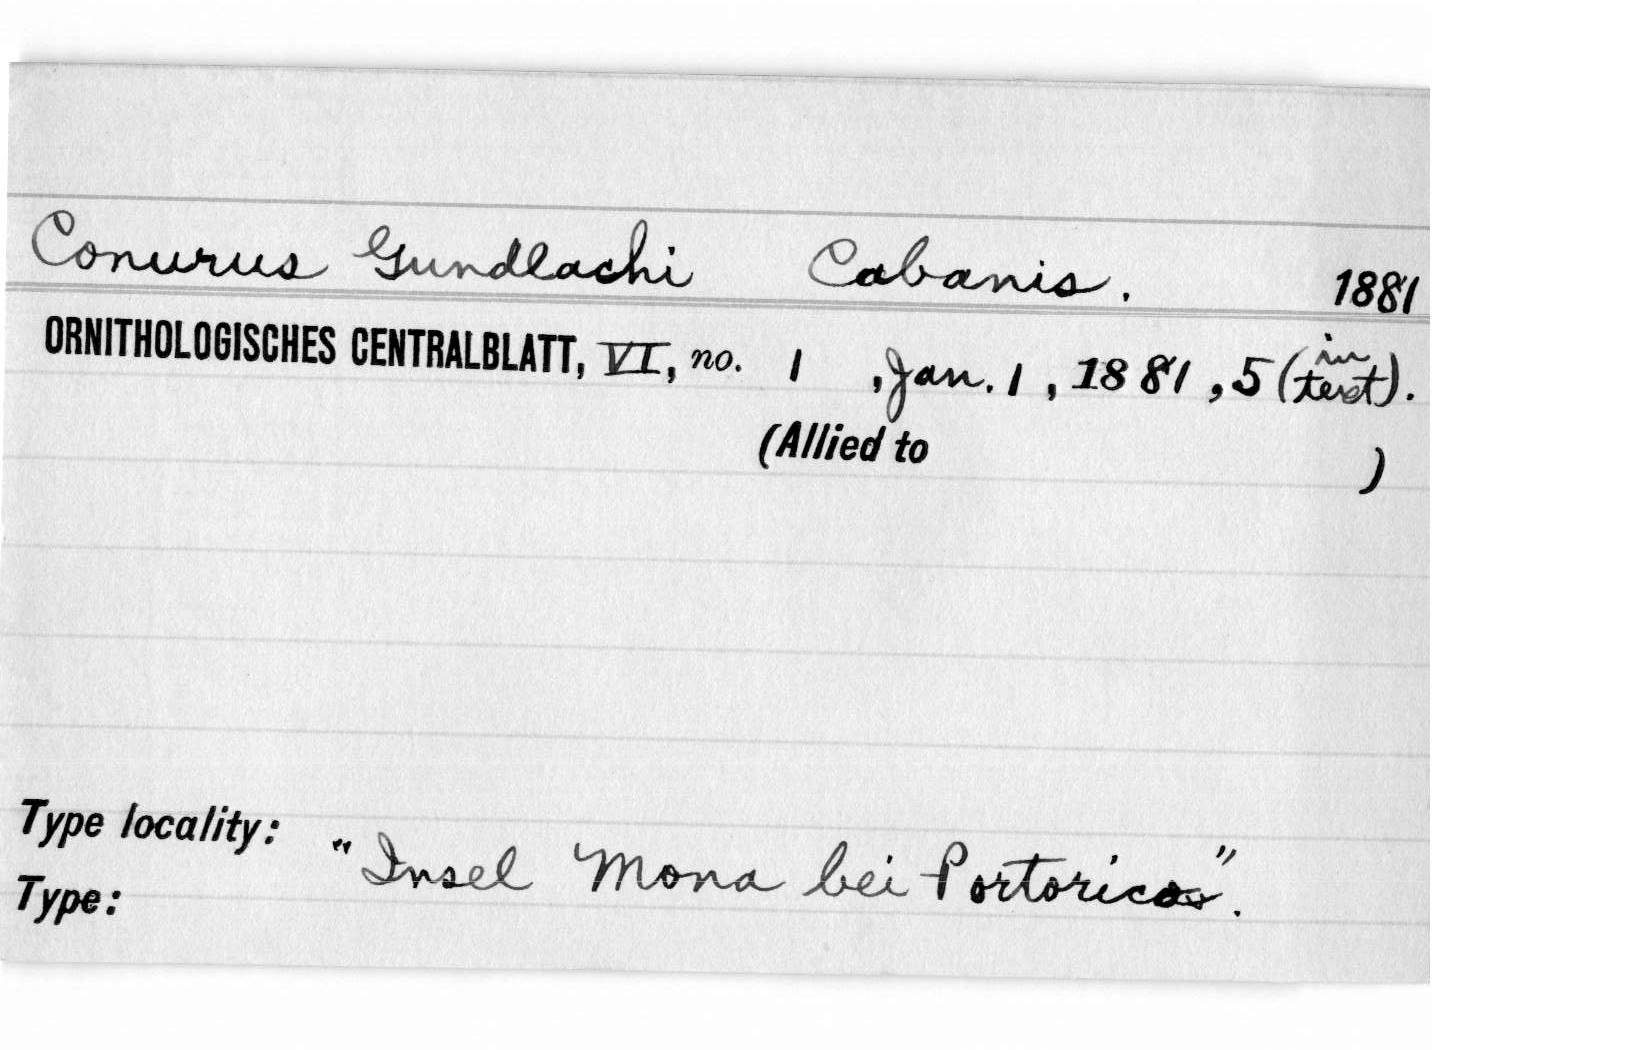 Conurus Gundlachi Cabanis. 1881
ORNITHOLOGISCHES CENTRALBLATT, VI, no. 1, Jan. 1, 1881, 5 (in text).
(Allied to )
Type locality: "Insel Mona bei Portorico".
Type: